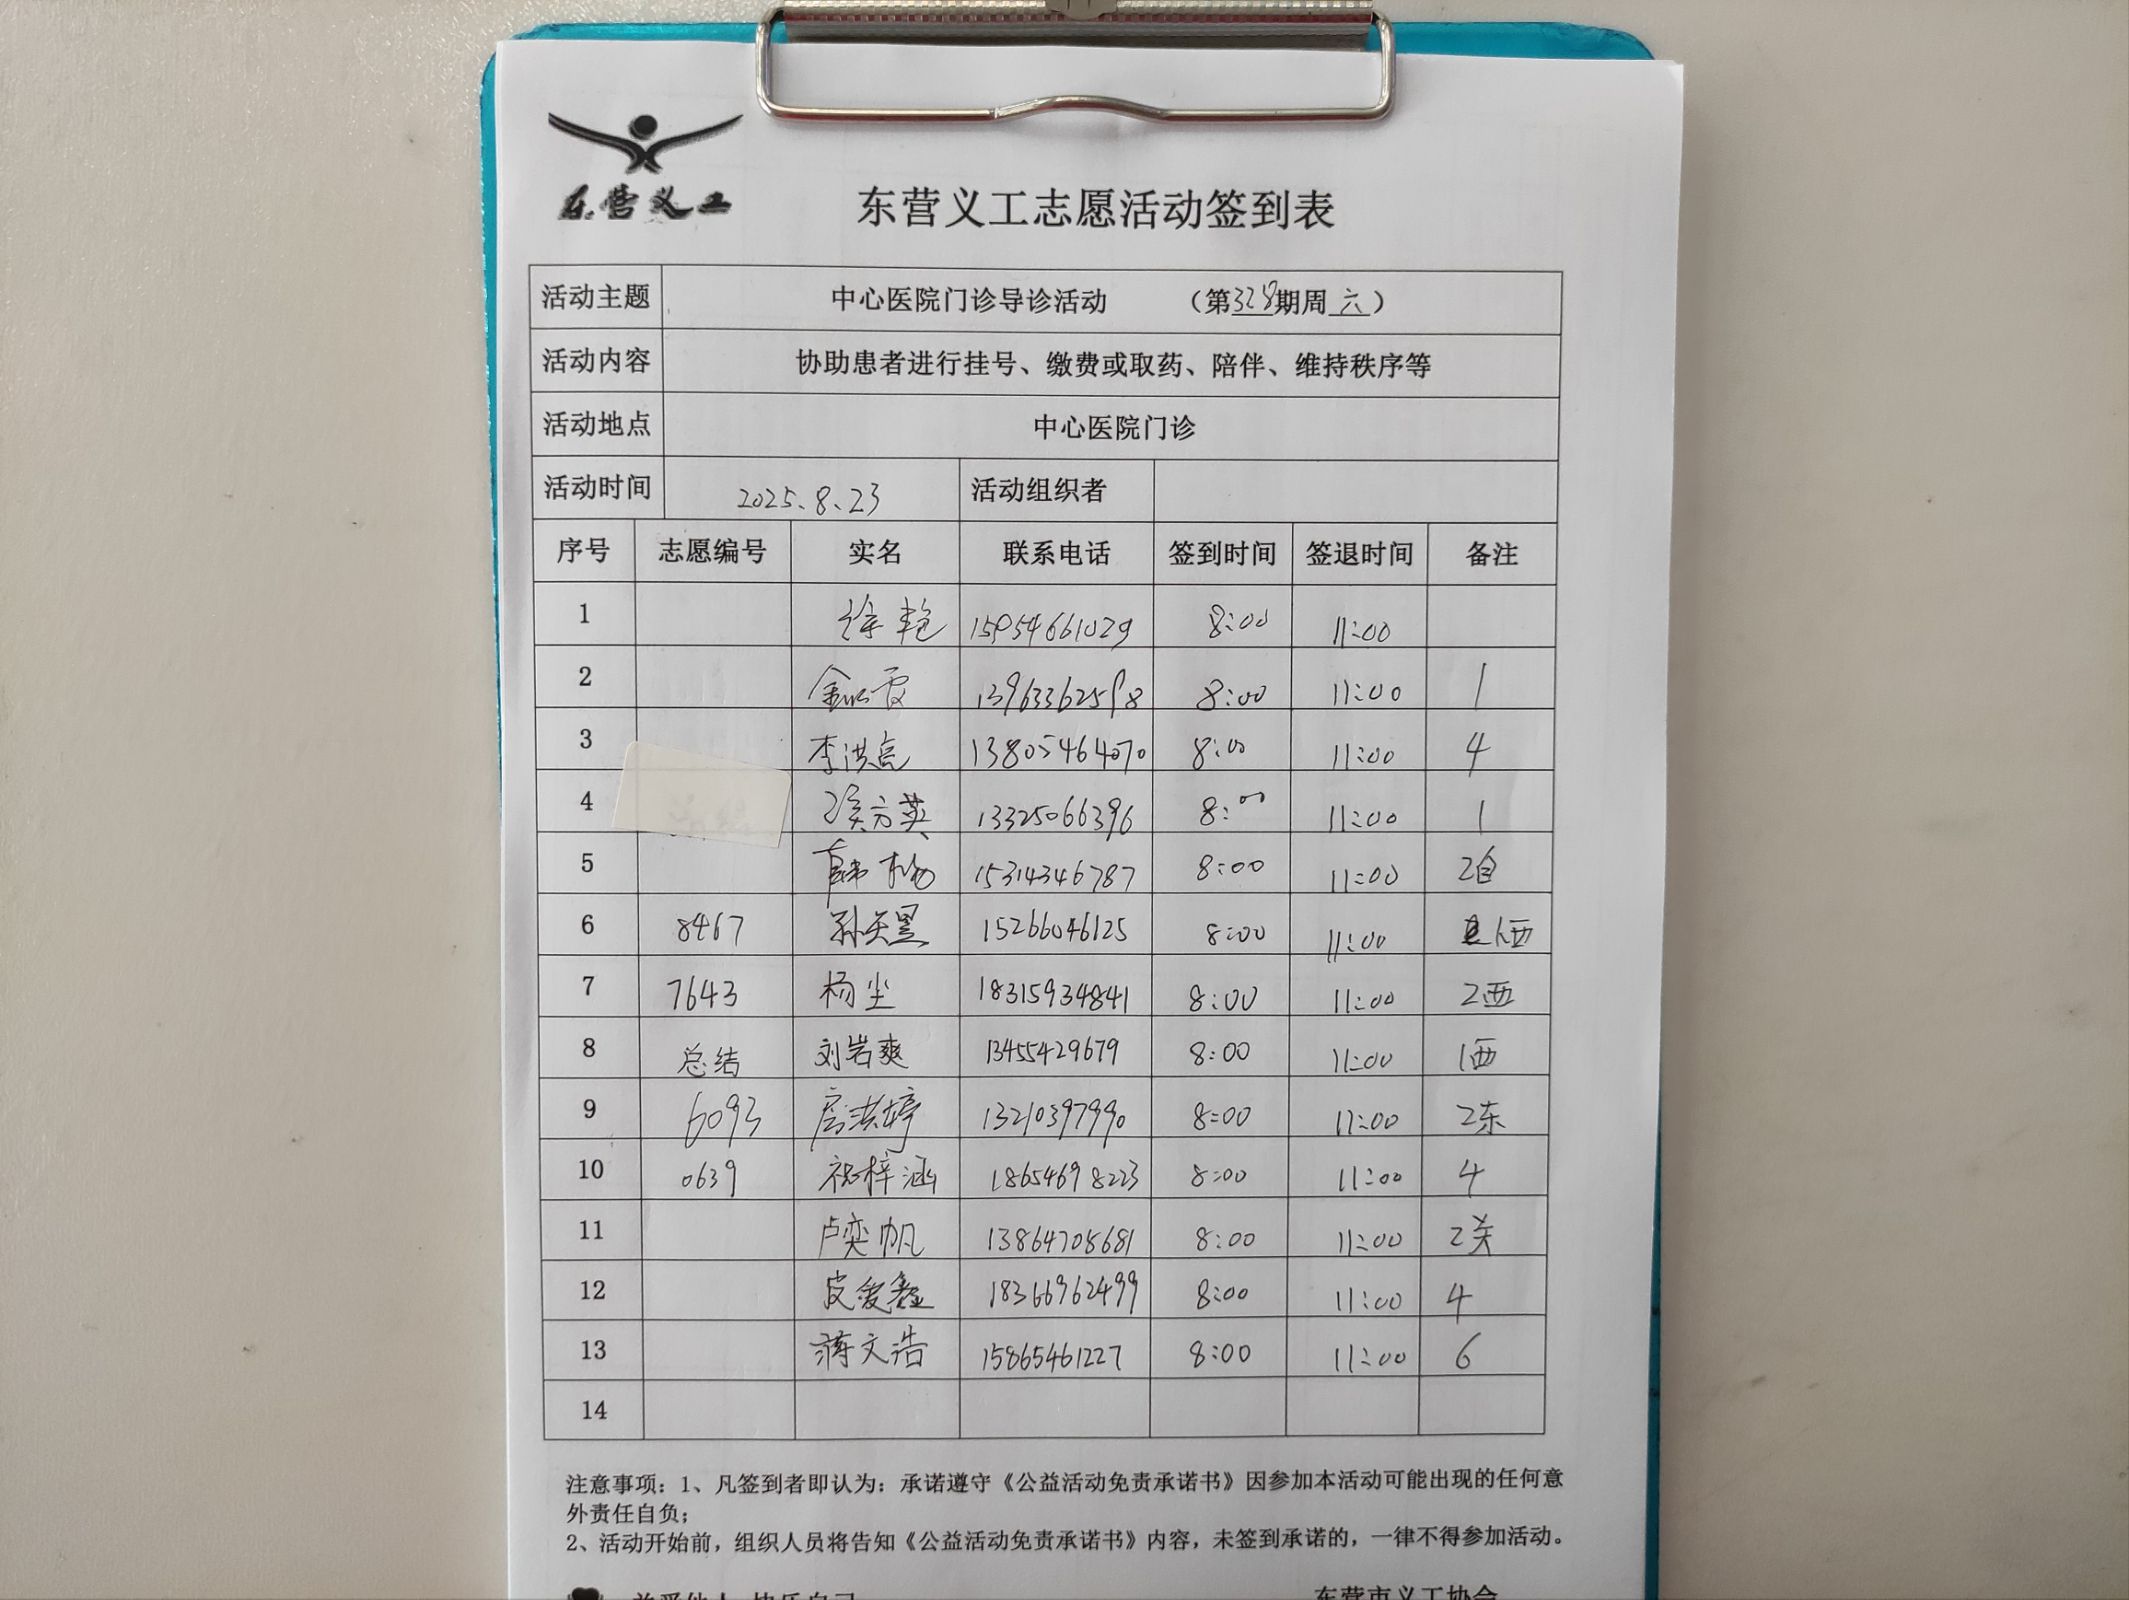 东营义工
东营义工志愿活动签到表
活动主题 中心医院门诊导诊活动 （第328期周六）
活动内容 协助患者进行挂号、缴费或取药、陪伴、维持秩序等
活动地点 中心医院门诊
活动时间 2025.8.23 活动组织者
序号 志愿编号 实名 联系电话 签到时间 签退时间 备注
1 徐艳 15954661029 8:00 11:00
2 13963362598 8:00 11:00 1
3 李洪亮 13805464070 8:00 11:00 4
4 方英 13325066396 8:00 11:00 1
5 韩杨 15314346787 8:00 11:00 2自
6 8467 孙天昱 15266046125 8:00 11:00 1西
7 7643 杨尘 18315934841 8:00 11:00 2西
8 总结 刘岩爽 13455429679 8:00 11:00 1西
9 6093 房洪婷 13210397990 8:00 11:00 2东
10 0639 祝梓涵 18654698223 8:00 11:00 4
11 卢奕帆 13864708681 8:00 11:00 2关
12 皮爱鑫 18366962499 8:00 11:00 4
13 蒋文浩 15865461227 8:00 11:00 6
14
注意事项：1、凡签到者即认为：承诺遵守《公益活动免责承诺书》因参加本活动可能出现的任何意
外责任自负；
2、活动开始前，组织人员将告知《公益活动免责承诺书》内容，未签到承诺的，一律不得参加活动。
东营市义工协会